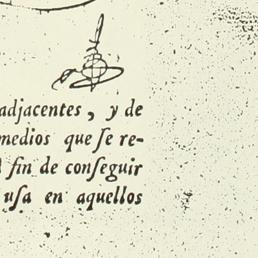 adjacentes, y de
medios que ſe re-
fin de conſeguir
uſa en aquellos